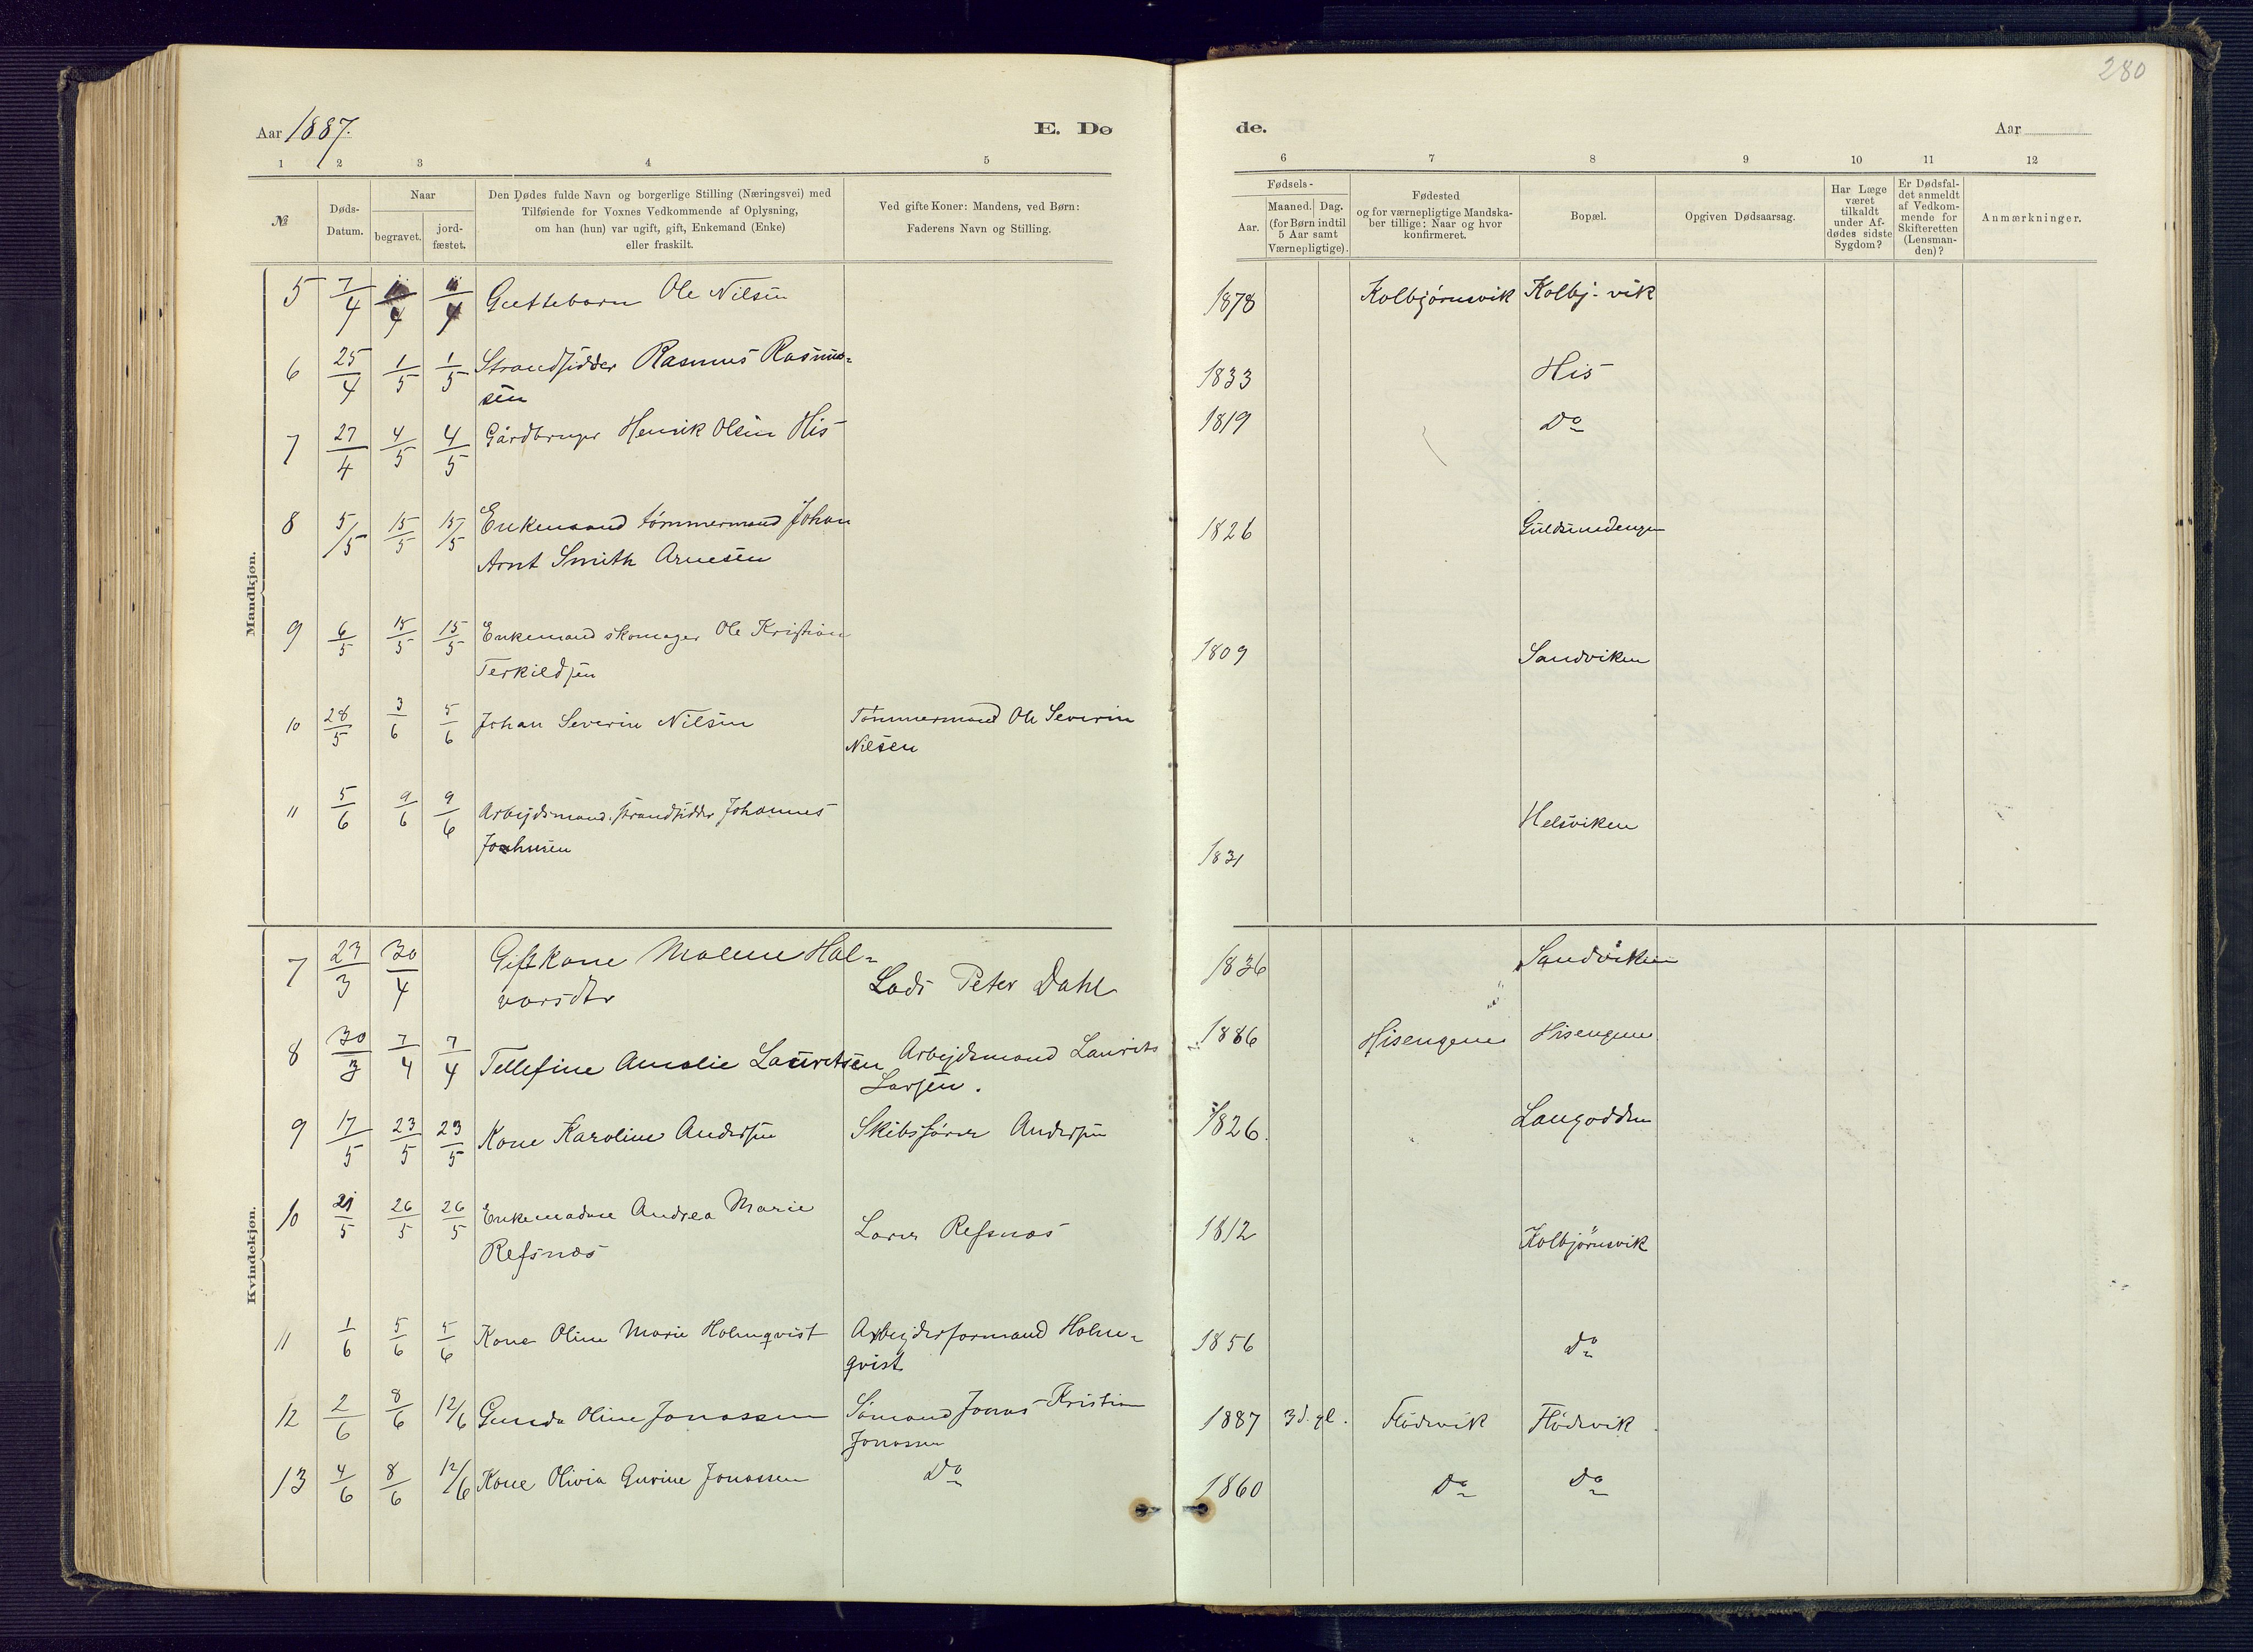 280
Aar 1887.
E. Dø
de.
Aar
1 2 3 4 5
6 7 8 9 10 11 12
№
Døds-
Datum.
Naar
begravet.
jord-
fæstet.
Den Dødes fulde Navn og borgerlige Stilling (Næringsvei) med
Tilføiende for Voxnes Vedkommende af Oplysning,
om han (hun) var ugift, gift, Enkemand (Enke)
eller fraskilt.
Ved gifte Koner: Mandens, ved Børn:
Faderens Navn og Stilling.
Fødsels-
Aar.
Maaned. Dag.
(for Børn indtil
5 Aar samt
Værnepligtige).
Fødested
og for værnepligtige Mandska-
ber tillige: Naar og hvor
konfirmeret.
Bopæl.
Opgiven Dødsaarsag.
Har Læge
været
tilkaldt
under Af-
dødes sidste
Sygdom?
Er Dødsfal-
det anmeldt
af Vedkom-
mende for
Skifteretten
(Lensman-
den)?
Anmærkninger.
Mandkjøn.
5 7/4 11/4 11/4 Guttebarn Ole Nilsen 1878 Kolbjörnsvik Kolbj-vik
6 25/4 1/5 1/5 Strandsidder Rasmus Rasmus-
sen 1833 His
7 27/4 4/5 4/5 Gårdbruger Henrik Olsen His 1819 Do
8 5/5 15/5 15/5 Enkemand tömmermand Johan
Arnt Smith Arnesen 1826 Guldsmedengen
9 6/5 15/5 15/5 Enkemand skomager Ole Kristian
Terkildsen 1809 Sandviken
10 28/5 3/6 5/6 Johan Severin Nilsen Tömmermand Ole Severin
Nilsen
11 5/6 9/6 9/6 Arbejdsmand. strandsidder Johannes
1831 Helsviken
Kvindekjøn.
7 23/3 30/4 Gift kone Malene Hal-
vorsdtr Lods Peter Dahl 1836 Sandviken
8 30/3 7/4 7/4 Tellefine Amalie Lauritsen Arbejdsmand Laurits
Larsen. 1886 Hisengene Hisengene
9 17/5 23/5 23/5 Kone Karoline Andersen Skibsförer Andersen 1826. Langodden
10 21/5 26/5 26/5 Enkemadme Andrea Marie
Refsnæs Refsnæs 1812 Kolbjörnsvik
11 1/6 5/6 5/6 Kone Oline Marie Holmqvist Arbejdsformand Holm-
qvist 1856 do
12 2/6 8/6 12/6 Gunda Oline Jonassen Sömand Jonas Kristian
Jonassen 1887 3 d. gl. Flödevik Flödevik
13 4/6 8/6 12/6 Kone Olivia Gurine Jonassen Do 1860 Do Do